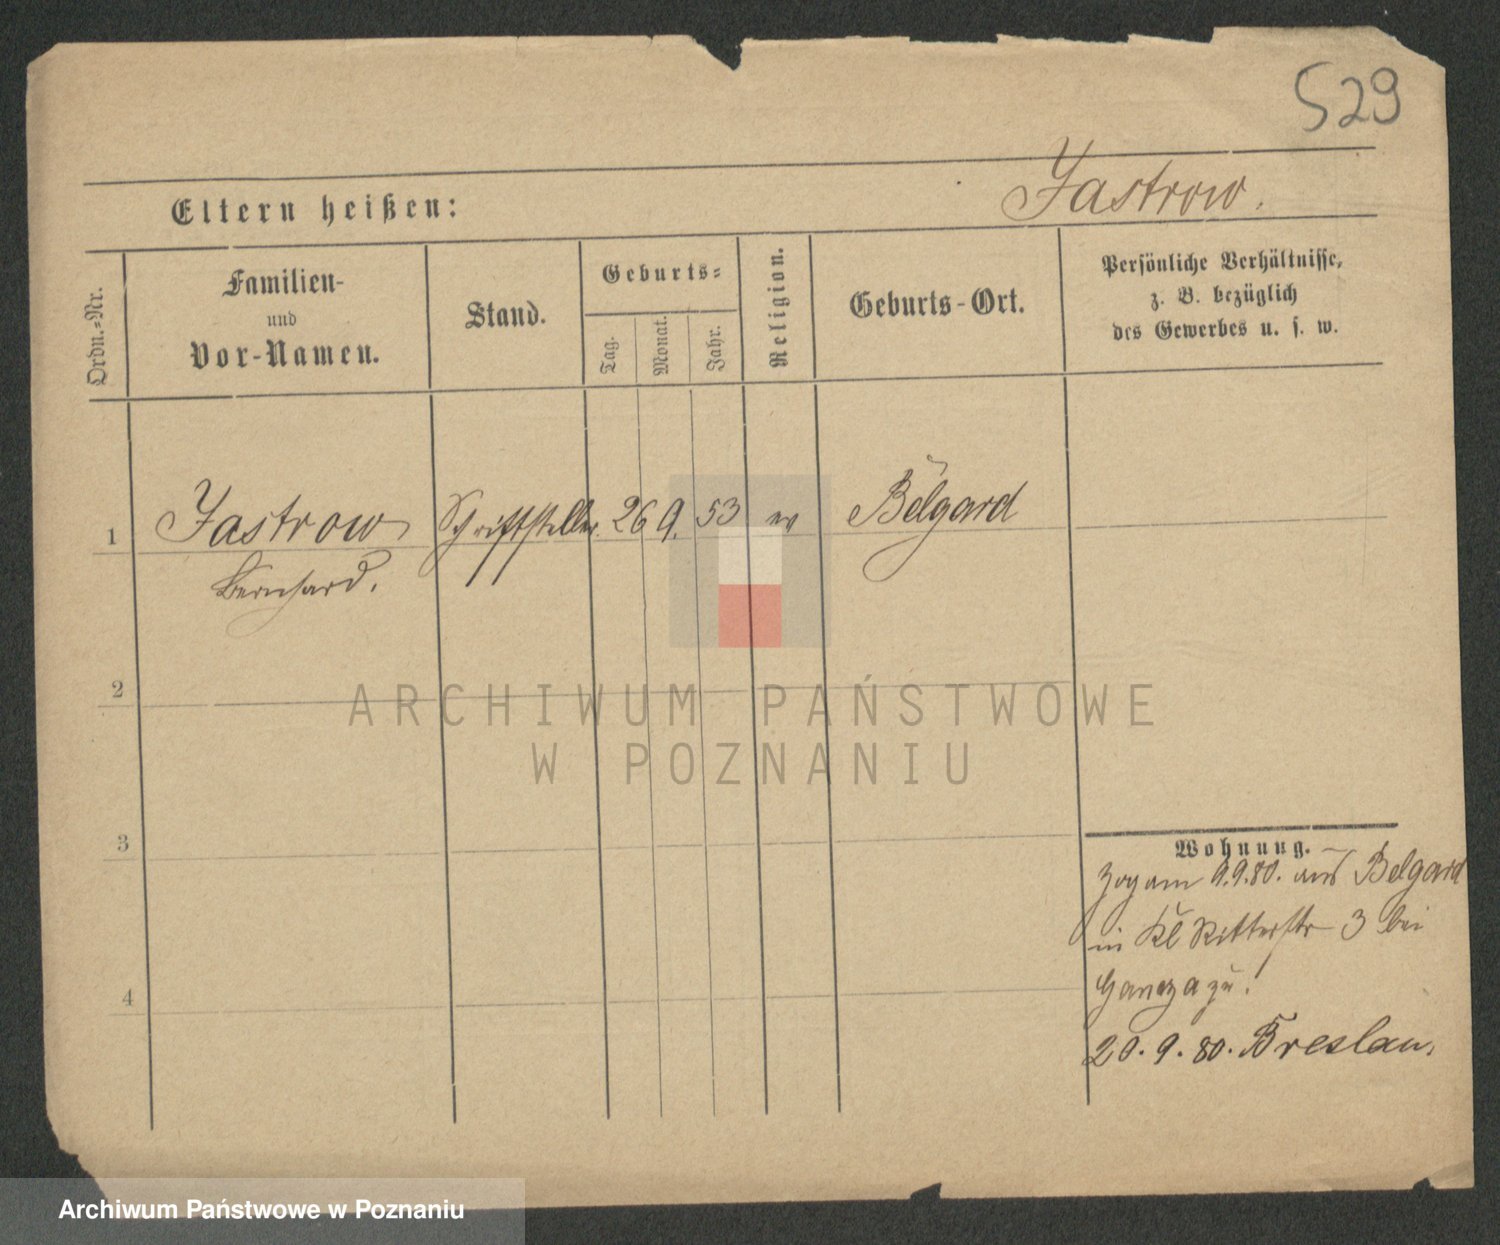 529
Jastrow.
Eltern heißen:
Ordn.=Nr.
Familien-
und
Vor-Namen.
Stand.
Geburts=
Tag.
Monat.
Jahr.
Religion.
Geburts-Ort.
Persönliche Verhältnisse,
z. B. bezüglich
des Gewerbes u. s. w.
1 Jastrow Schriftsteller 26 9. 53 ev Belgard
Bernhard.
2
3
4
Wohnung.
Zog am 9.9.80. aus Belgard
in Kl Ritterstr 3 bei
zu.
20.9.80. Breslau.
ARCHIWUM PAŃSTWOWE
W POZNANIU
Archiwum Państwowe w Poznaniu